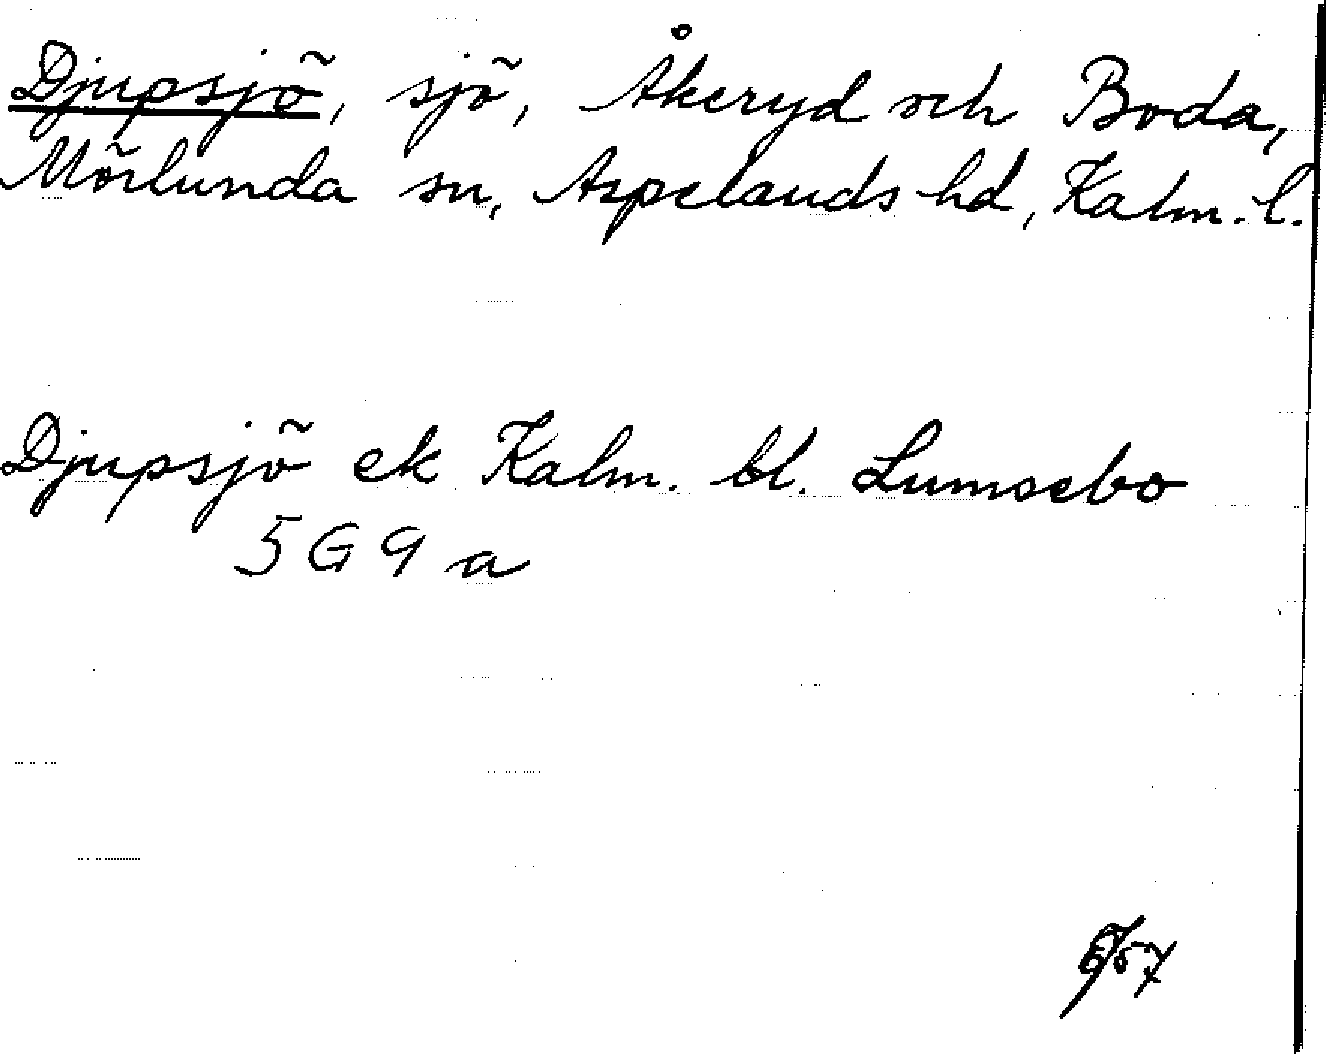 Djupsjö, sjö, Åkeryd och Boda,
Mörlunda sn, Aspelands hd, Kalm. l.
Djupsjö ek Kalm. bl. Lumsebo
5 G 9 a